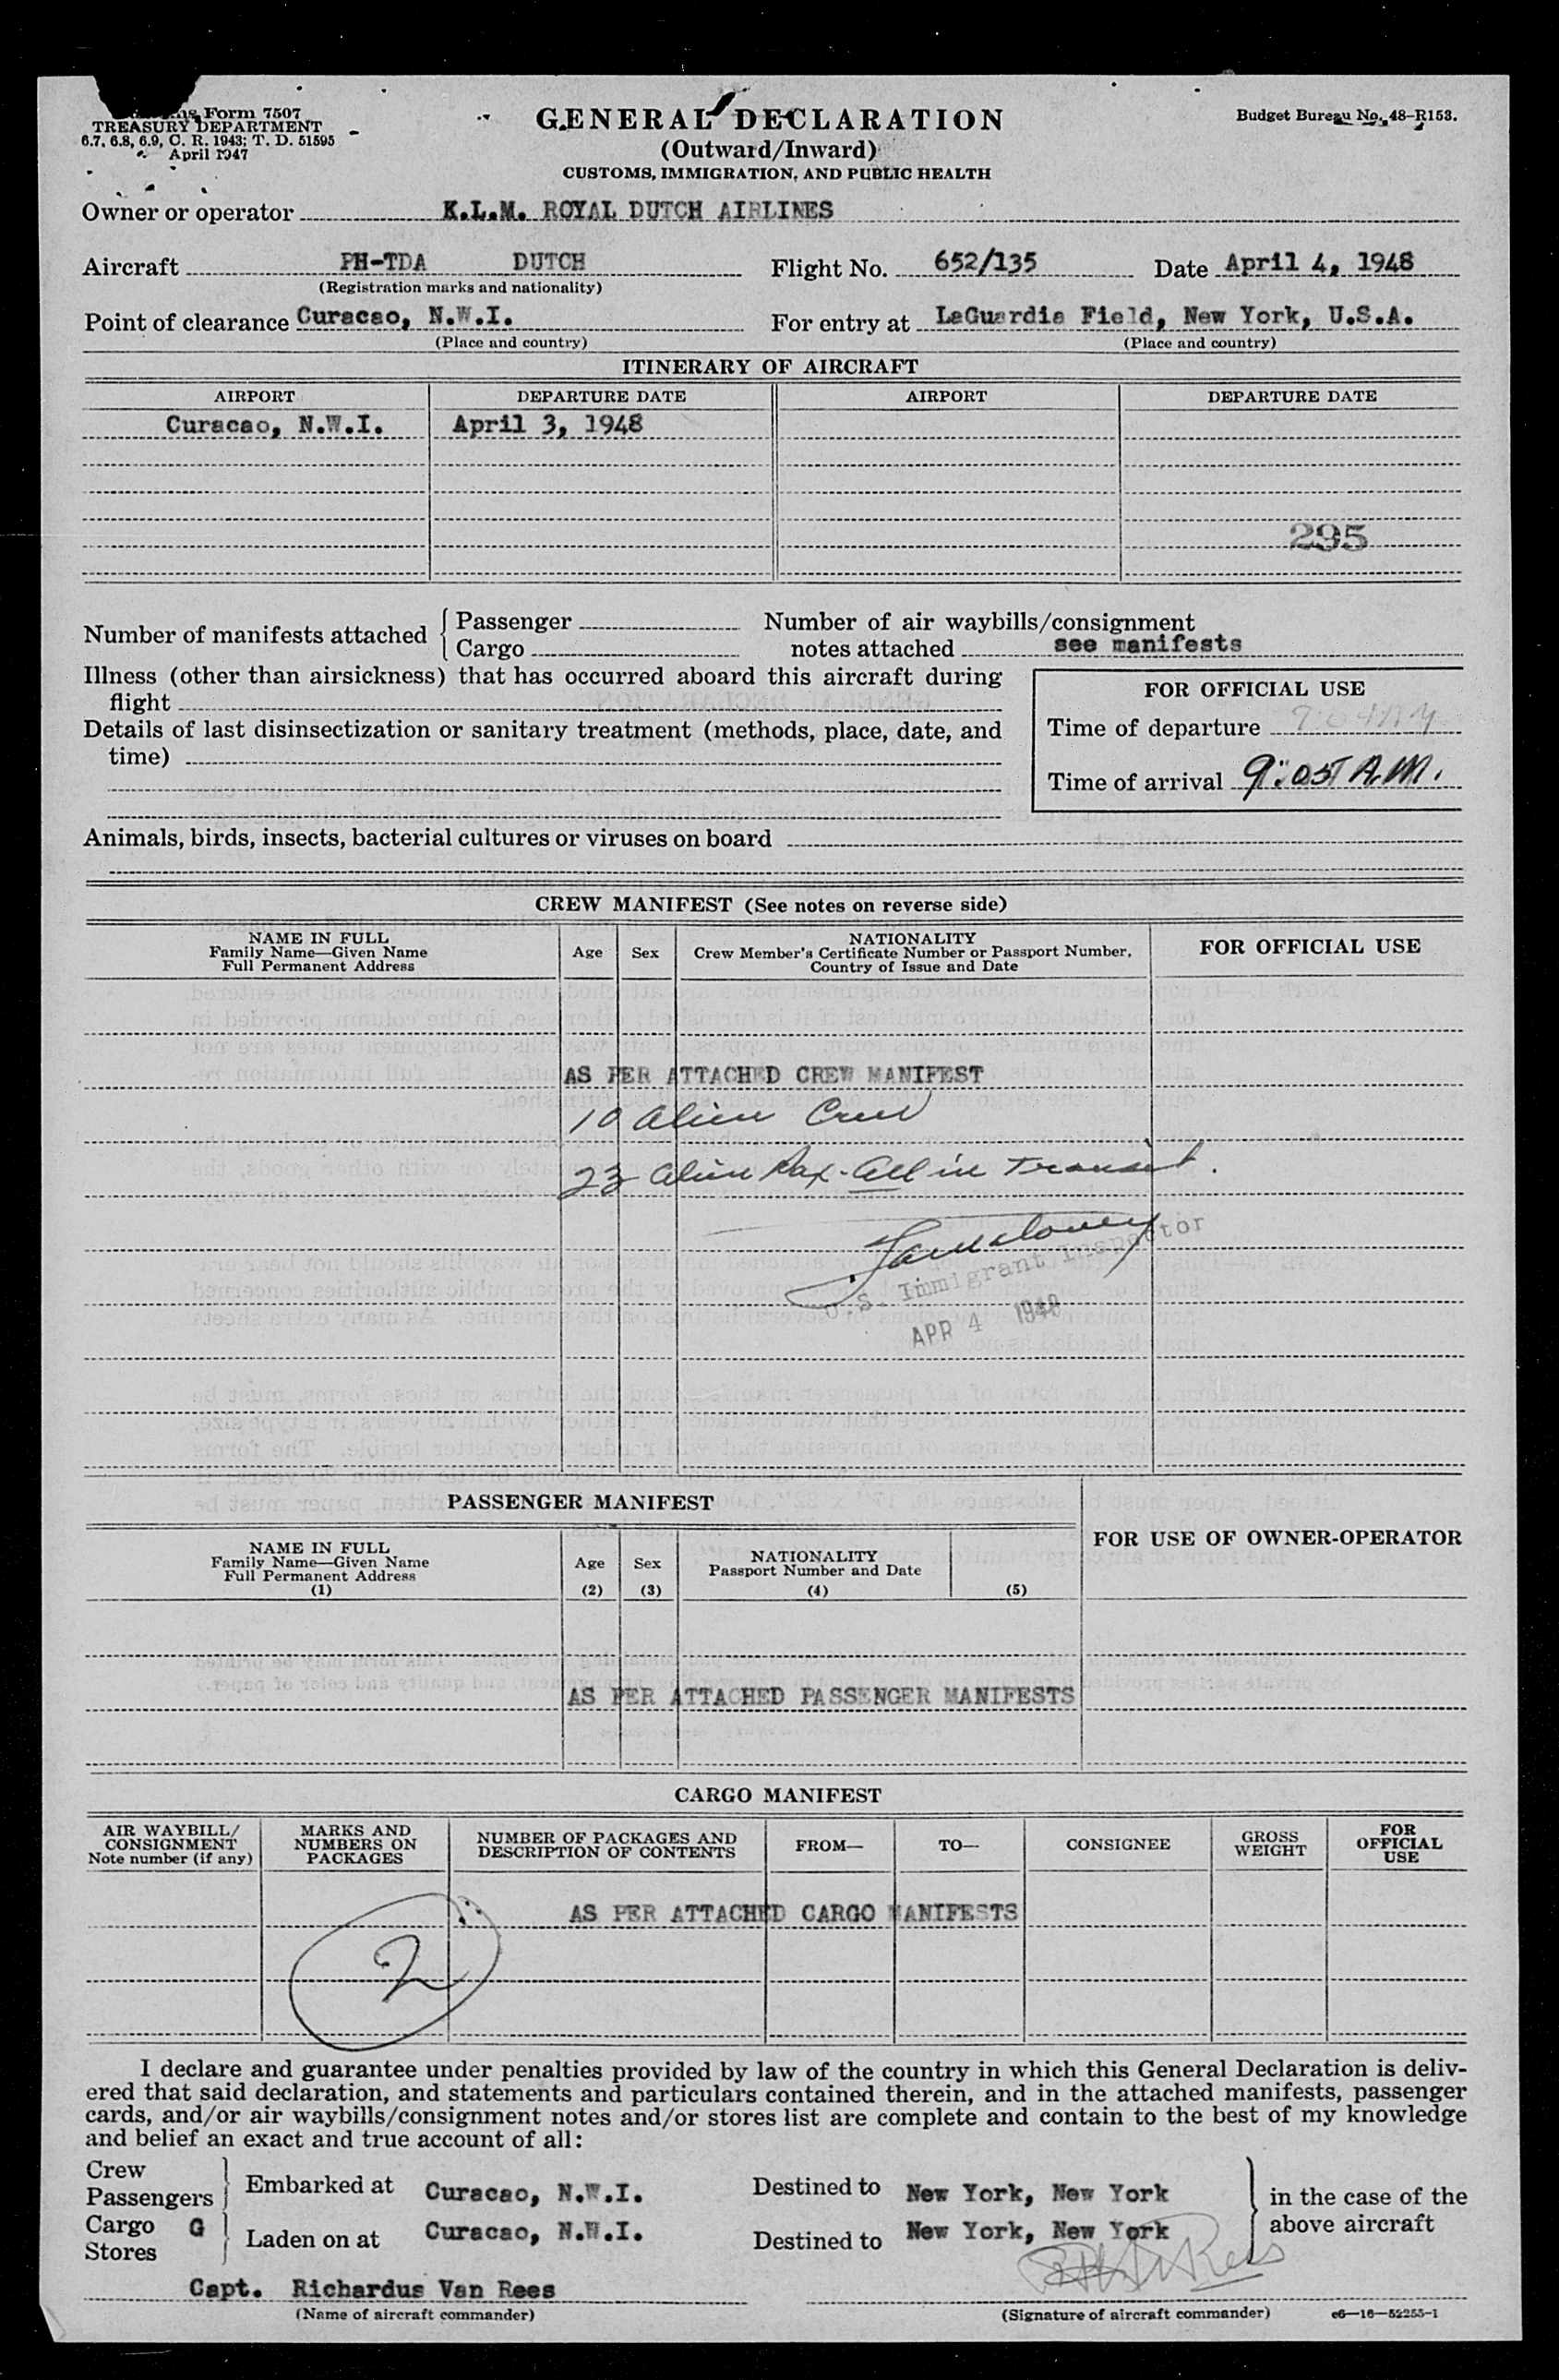 Form 7507
TREASURY DEPARTMENT
6.7, 6.8, 6.9, C. R. 1943; T. D. 51595
April 1947
GENERAL DECLARATION
(Outward/Inward)
CUSTOMS, IMMIGRATION, AND PUBLIC HEALTH
Budget Bureau No. 48-R153.
Owner or operator K.L.M. ROYAL DUTCH AIRLINES
Aircraft PH-TDA DUTCH Flight No. 652/135 Date April 4, 1948
(Registration marks and nationality)
Point of clearance Curacao, N.W.I. For entry at LaGuardia Field, New York, U.S.A.
(Place and country) (Place and country)
ITINERARY OF AIRCRAFT
AIRPORT DEPARTURE DATE AIRPORT DEPARTURE DATE
Curacao, N.W.I. April 3, 1948
295
Number of manifests attached { Passenger Number of air waybills/consignment
Cargo notes attached see manifests
Illness (other than airsickness) that has occurred aboard this aircraft during
flight
Details of last disinsectization or sanitary treatment (methods, place, date, and
time)
FOR OFFICIAL USE
Time of departure
Time of arrival 9:05 A.M.
Animals, birds, insects, bacterial cultures or viruses on board
CREW MANIFEST (See notes on reverse side)
NAME IN FULL
Family Name—Given Name
Full Permanent Address
Age
Sex
NATIONALITY
Crew Member's Certificate Number or Passport Number,
Country of Issue and Date
FOR OFFICIAL USE
AS PER ATTACHED CREW MANIFEST
10 Alien Crew
23 Alien Pax - All in Transit.
U.S. Immigrant Inspector
APR 4 1948
PASSENGER MANIFEST
FOR USE OF OWNER-OPERATOR
NAME IN FULL
Family Name—Given Name
Full Permanent Address
(1)
Age
(2)
Sex
(3)
NATIONALITY
Passport Number and Date
(4)
(5)
AS PER ATTACHED PASSENGER MANIFESTS
CARGO MANIFEST
AIR WAYBILL/
CONSIGNMENT
Note number (if any)
MARKS AND
NUMBERS ON
PACKAGES
NUMBER OF PACKAGES AND
DESCRIPTION OF CONTENTS
FROM—
TO—
CONSIGNEE
GROSS
WEIGHT
FOR
OFFICIAL
USE
AS PER ATTACHED CARGO MANIFESTS
2
I declare and guarantee under penalties provided by law of the country in which this General Declaration is deliv-
ered that said declaration, and statements and particulars contained therein, and in the attached manifests, passenger
cards, and/or air waybills/consignment notes and/or stores list are complete and contain to the best of my knowledge
and belief an exact and true account of all:
Crew
Passengers } Embarked at Curacao, N.W.I. Destined to New York, New York
Cargo G
Stores } Laden on at Curacao, N.W.I. Destined to New York, New York
in the case of the
above aircraft
Capt. Richardus Van Rees
(Name of aircraft commander) (Signature of aircraft commander) c6—16—52255-1